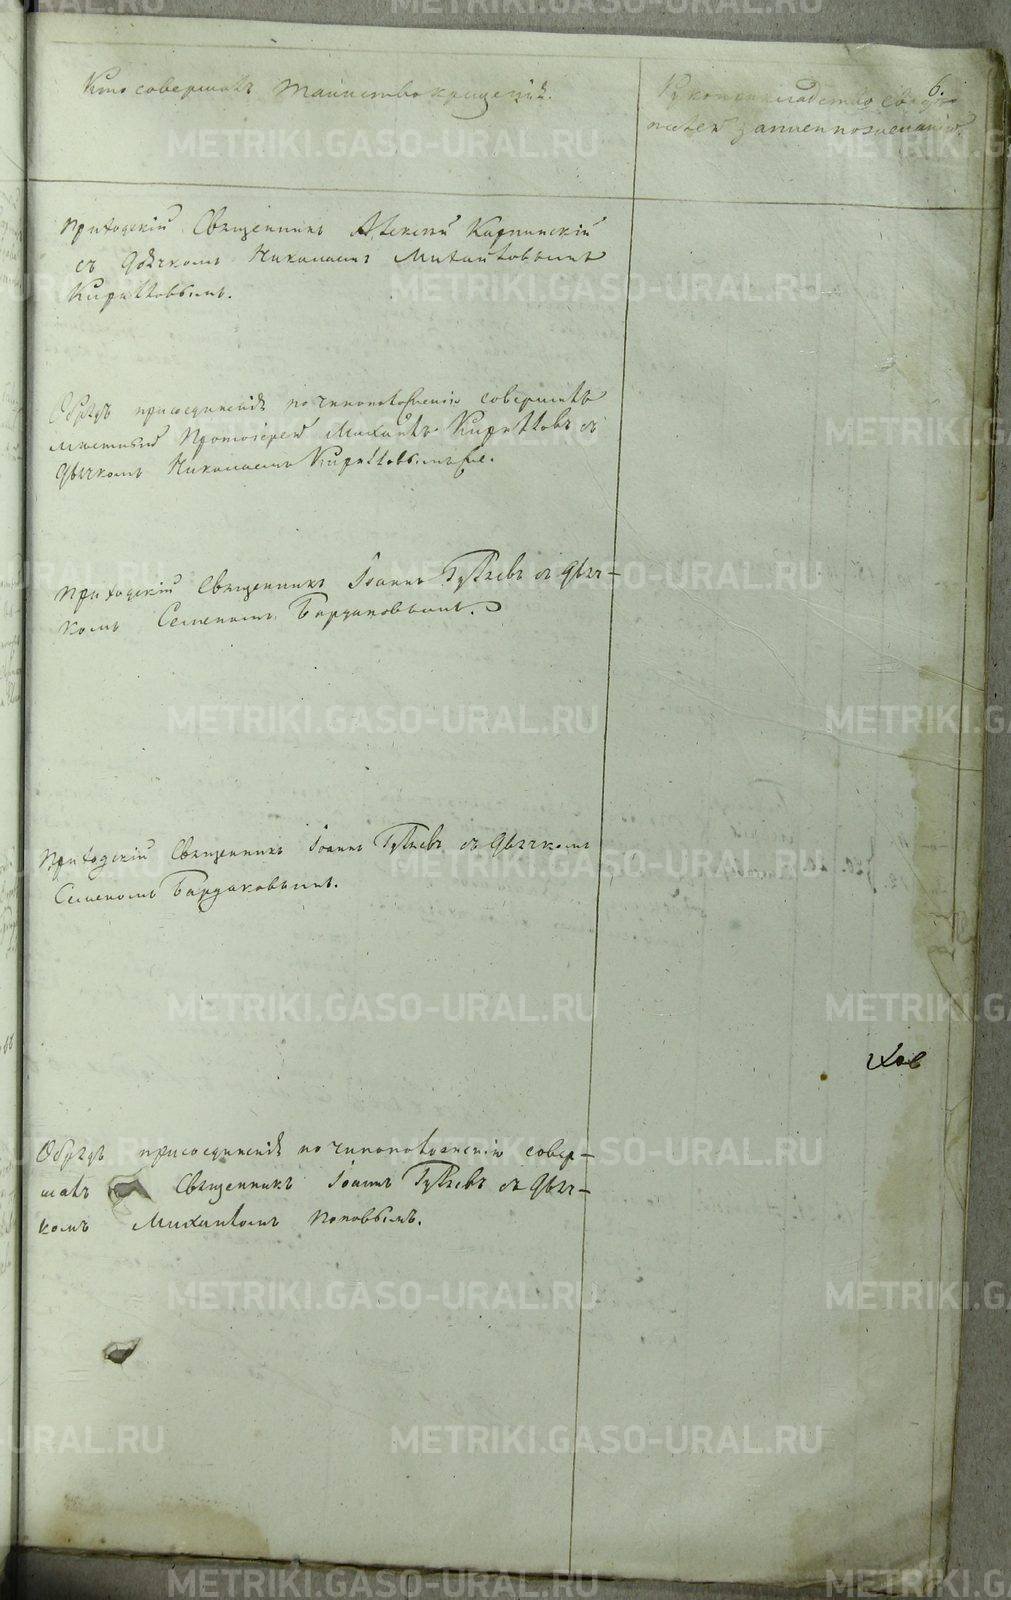 6.
Кто совершалъ таинство крещенія.
Рукоприкладство свидѣ-
телей записи по желанію.
Приходскій Священникъ Алексій Карпинскій
съ дьячкомъ Николаемъ Михайловымъ
Кирилловымъ.
Обрядъ присоединенія по чиноположенію совершалъ
мѣстный Протоіерей Михаилъ Кирилловъ съ
дьячкомъ Николаемъ Кирилловымъ же.
Приходскій Священникъ Іоаннъ Гуляевъ съ дьяч-
комъ Семеномъ Бардаковымъ.
Приходскій Священникъ Іоаннъ Гуляевъ съ дьячкомъ
Семеномъ Бардаковымъ.
Обрядъ присоединенія по чиноположенію совер-
шалъ Священникъ Іоаннъ Гуляевъ съ дьяч-
комъ Михаиломъ Поповымъ.
METRIKI.GASO-URAL.RU